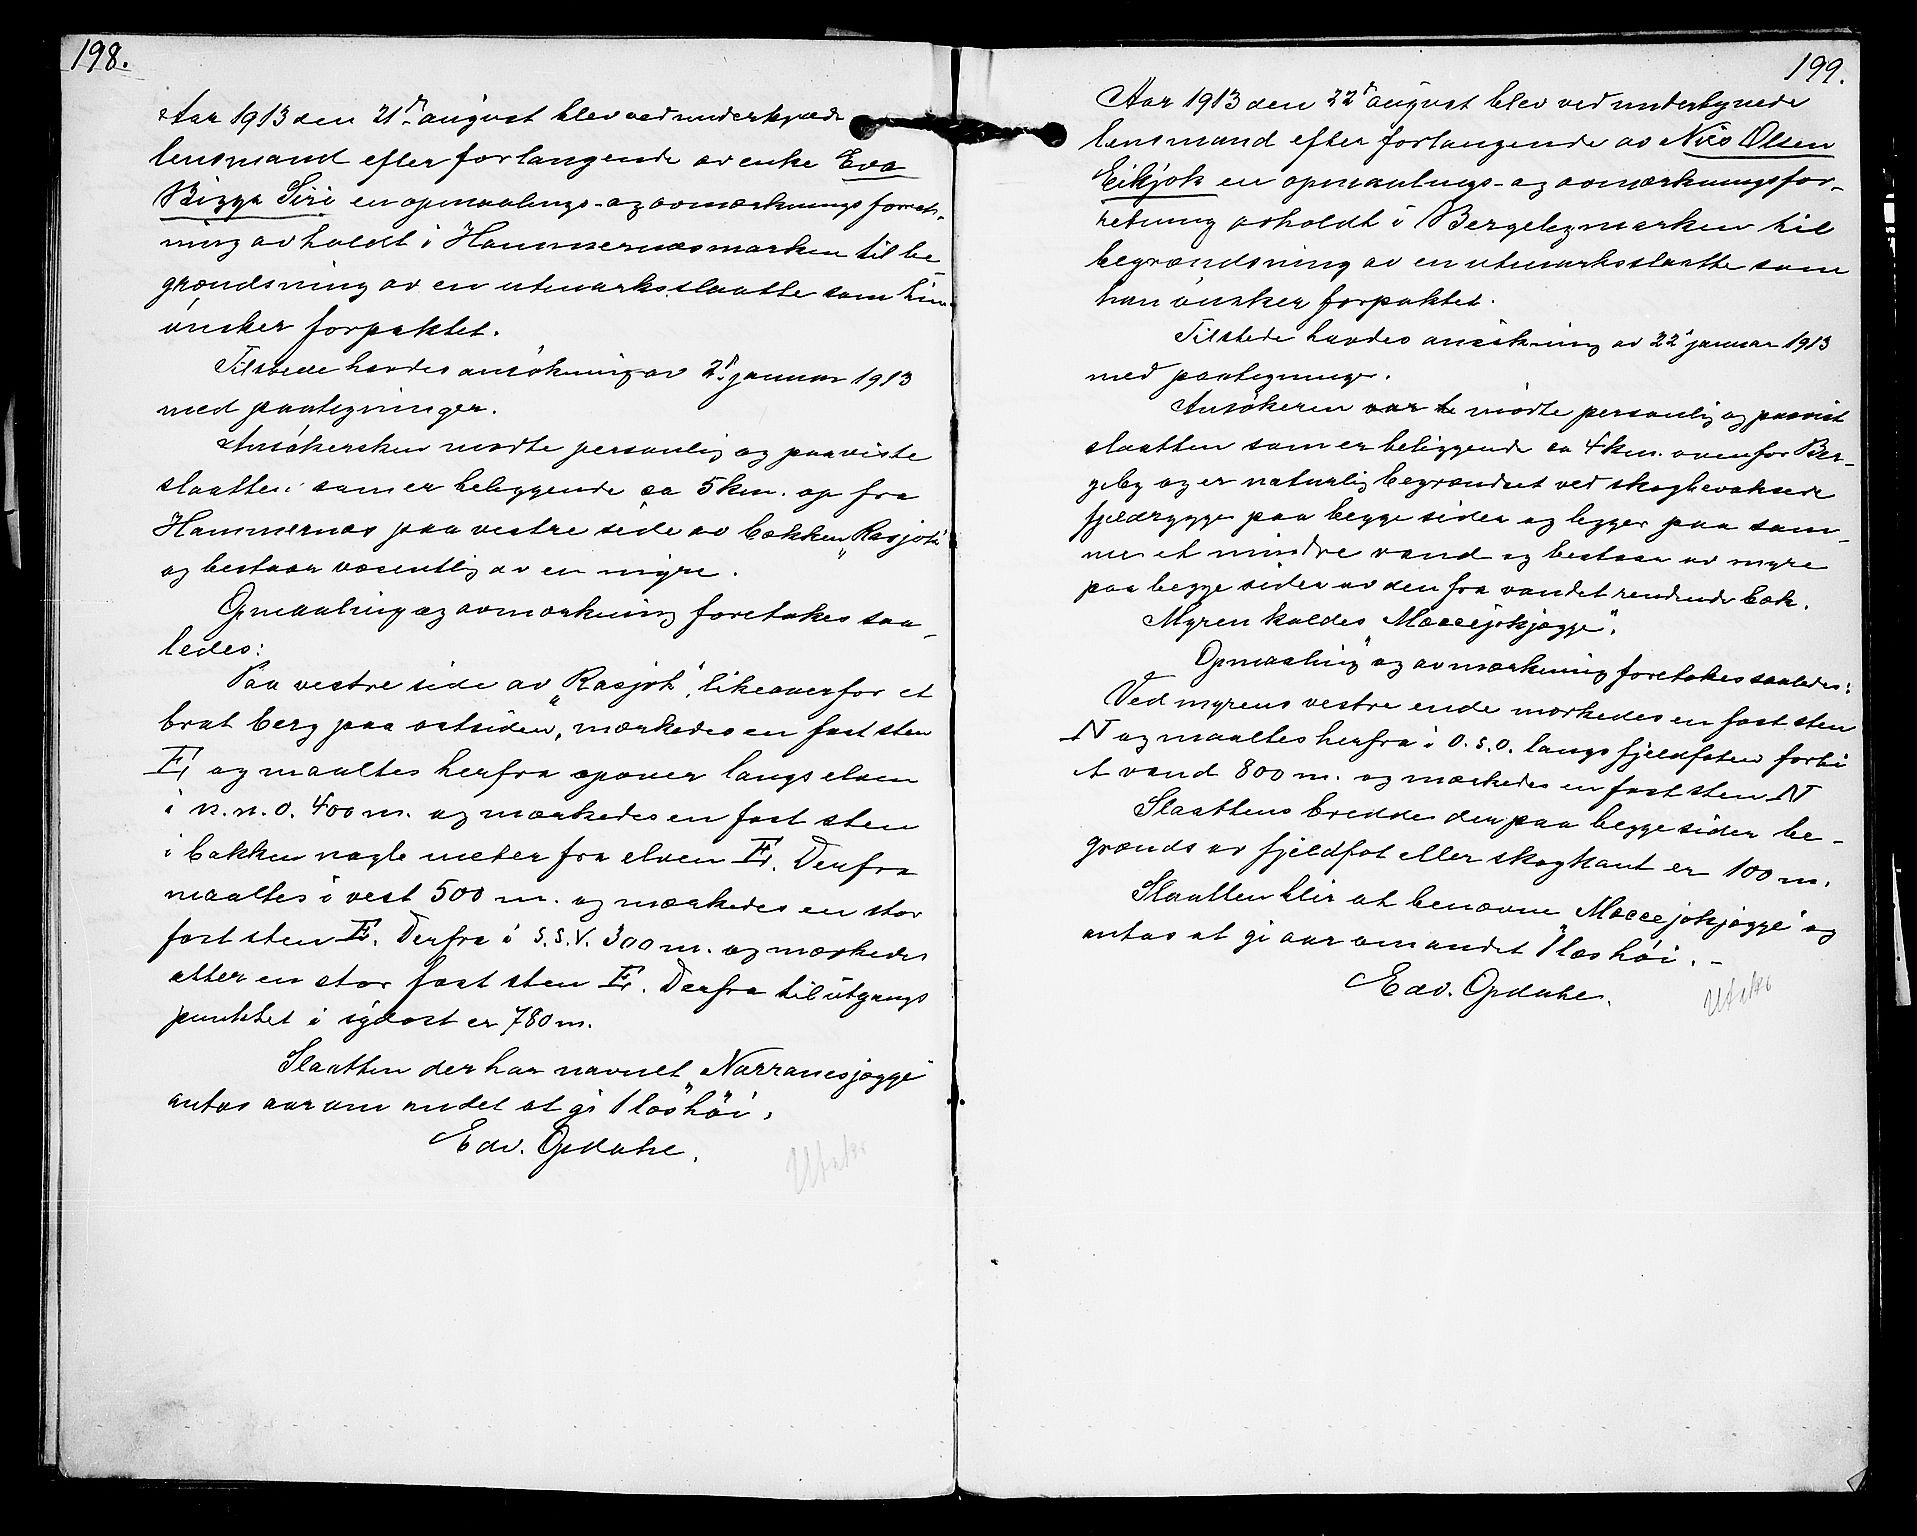 198.
Aar 1913 den 21de august blev ved undertegnede
lensmand efter forlangende av enke Eva
Bigga Siri en opmaalings- og avmærknings forret-
ning avholdt i Hammernæsmarken til be-
grændsning av en utmarksslaatte som hun
ønsker forpaktet.
Tilstede havdes ansøkning av 2. januar 1913
med paategninger.
Ansøkersken mødte personlig og paaviste
slaatten som er beliggende ca 5 km. op fra
Hammernæs paa vestre side av bækken „Rasjok"
og bestaar væsentlig av en myre.
Opmaaling og avmærkning foretokes saa-
ledes:
Paa vestre side av „Rasjok", likeoverfor et
brat berg paa østsiden, mærkedes en fast sten
E og maaltes herfra opover langs elven
i n.n.o. 400 m. og mærkedes en fast sten
i bakken nogle meter fra elven E. Derfra
maaltes i vest 500 m. og mærkedes en stor
fast sten E. Derfra i s.s.v. 300 m. og mærkedes
atter en stor fast sten E. Derfra til utgangs
punktet i sydost er 780 m.
Slaatten der har navnet „Narranesjægge"
antas aar om andet at gi 1 læs høi.
Edv. Opdahl.
199.
Aar 1913 den 22de august blev ved undertegnede
lensmand efter forlangende av Nils Olsen
Eikjok en opmaalings- og avmærkningsfor-
retning avholdt i Bergebymarken til
begrændsning av en utmarksslaatte som
han ønsker forpaktet.
Tilstede havdes ansøkning av 22 januar 1913
med paategninger.
Ansøkeren var te mødte personlig og paavist
slaatten som er beliggende ca 4 km. ovenfor Ber-
geby og er naturlig begrændset ved skogbevoksede
fjeldrygge paa begge sider og ligger paa sam-
me et mindre vand og bestaar av myre
paa begge sider av den fra vandet rendende bæk.
Myren kaldes „Moccejokjægge".
Opmaaling og avmærkning foretokes saaledes:
Ved myrens vestre ende mærkedes en fast sten
N og maaltes herfra i o.s.o. langs fjeldfoten forbi
et vand 800 m. og mærkedes en fast sten N
Slaattens bredde der paa begge sider be-
grænds av fjeldfot eller skogkant er 100 m.
Slaatten blir at benævne „Moccejokjægge" og
antas at gi aar om andet 1 læs høi. -
Edv. Opdahl.